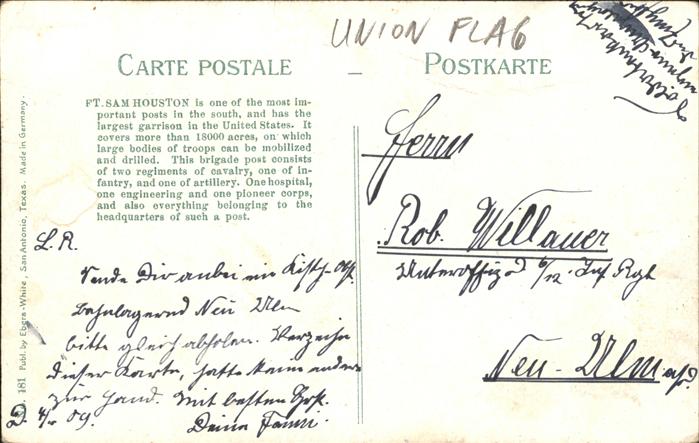 UNION FLAG
CARTE POSTALE – POSTKARTE
FT. SAM HOUSTON is one of the most im-
portant posts in the south, and has the
largest garrison in the United States. It
covers more than 18000 acres, on which
large bodies of troops can be mobilized
and drilled. This brigade post consists
of two regiments of cavalry, one of in-
fantry, and one of artillery. One hospital,
one engineering and one pioneer corps,
and also everything belonging to the
headquarters of such a post.
D. 181 Publ. by Ebers-White, San Antonio, Texas. Made in Germany.
L. R.
Sende Dir anbei ein
bahnlagernd Neu Ulm
bitte gleich abholen. Verzeihe
dieser Karte, hatte keine andere
zur Hand. Mit besten
D. 09. Deine
Herrn
Rob. Willauer
Unteroffiz. /12. Inf. Regt
Neu-Ulm a/D.